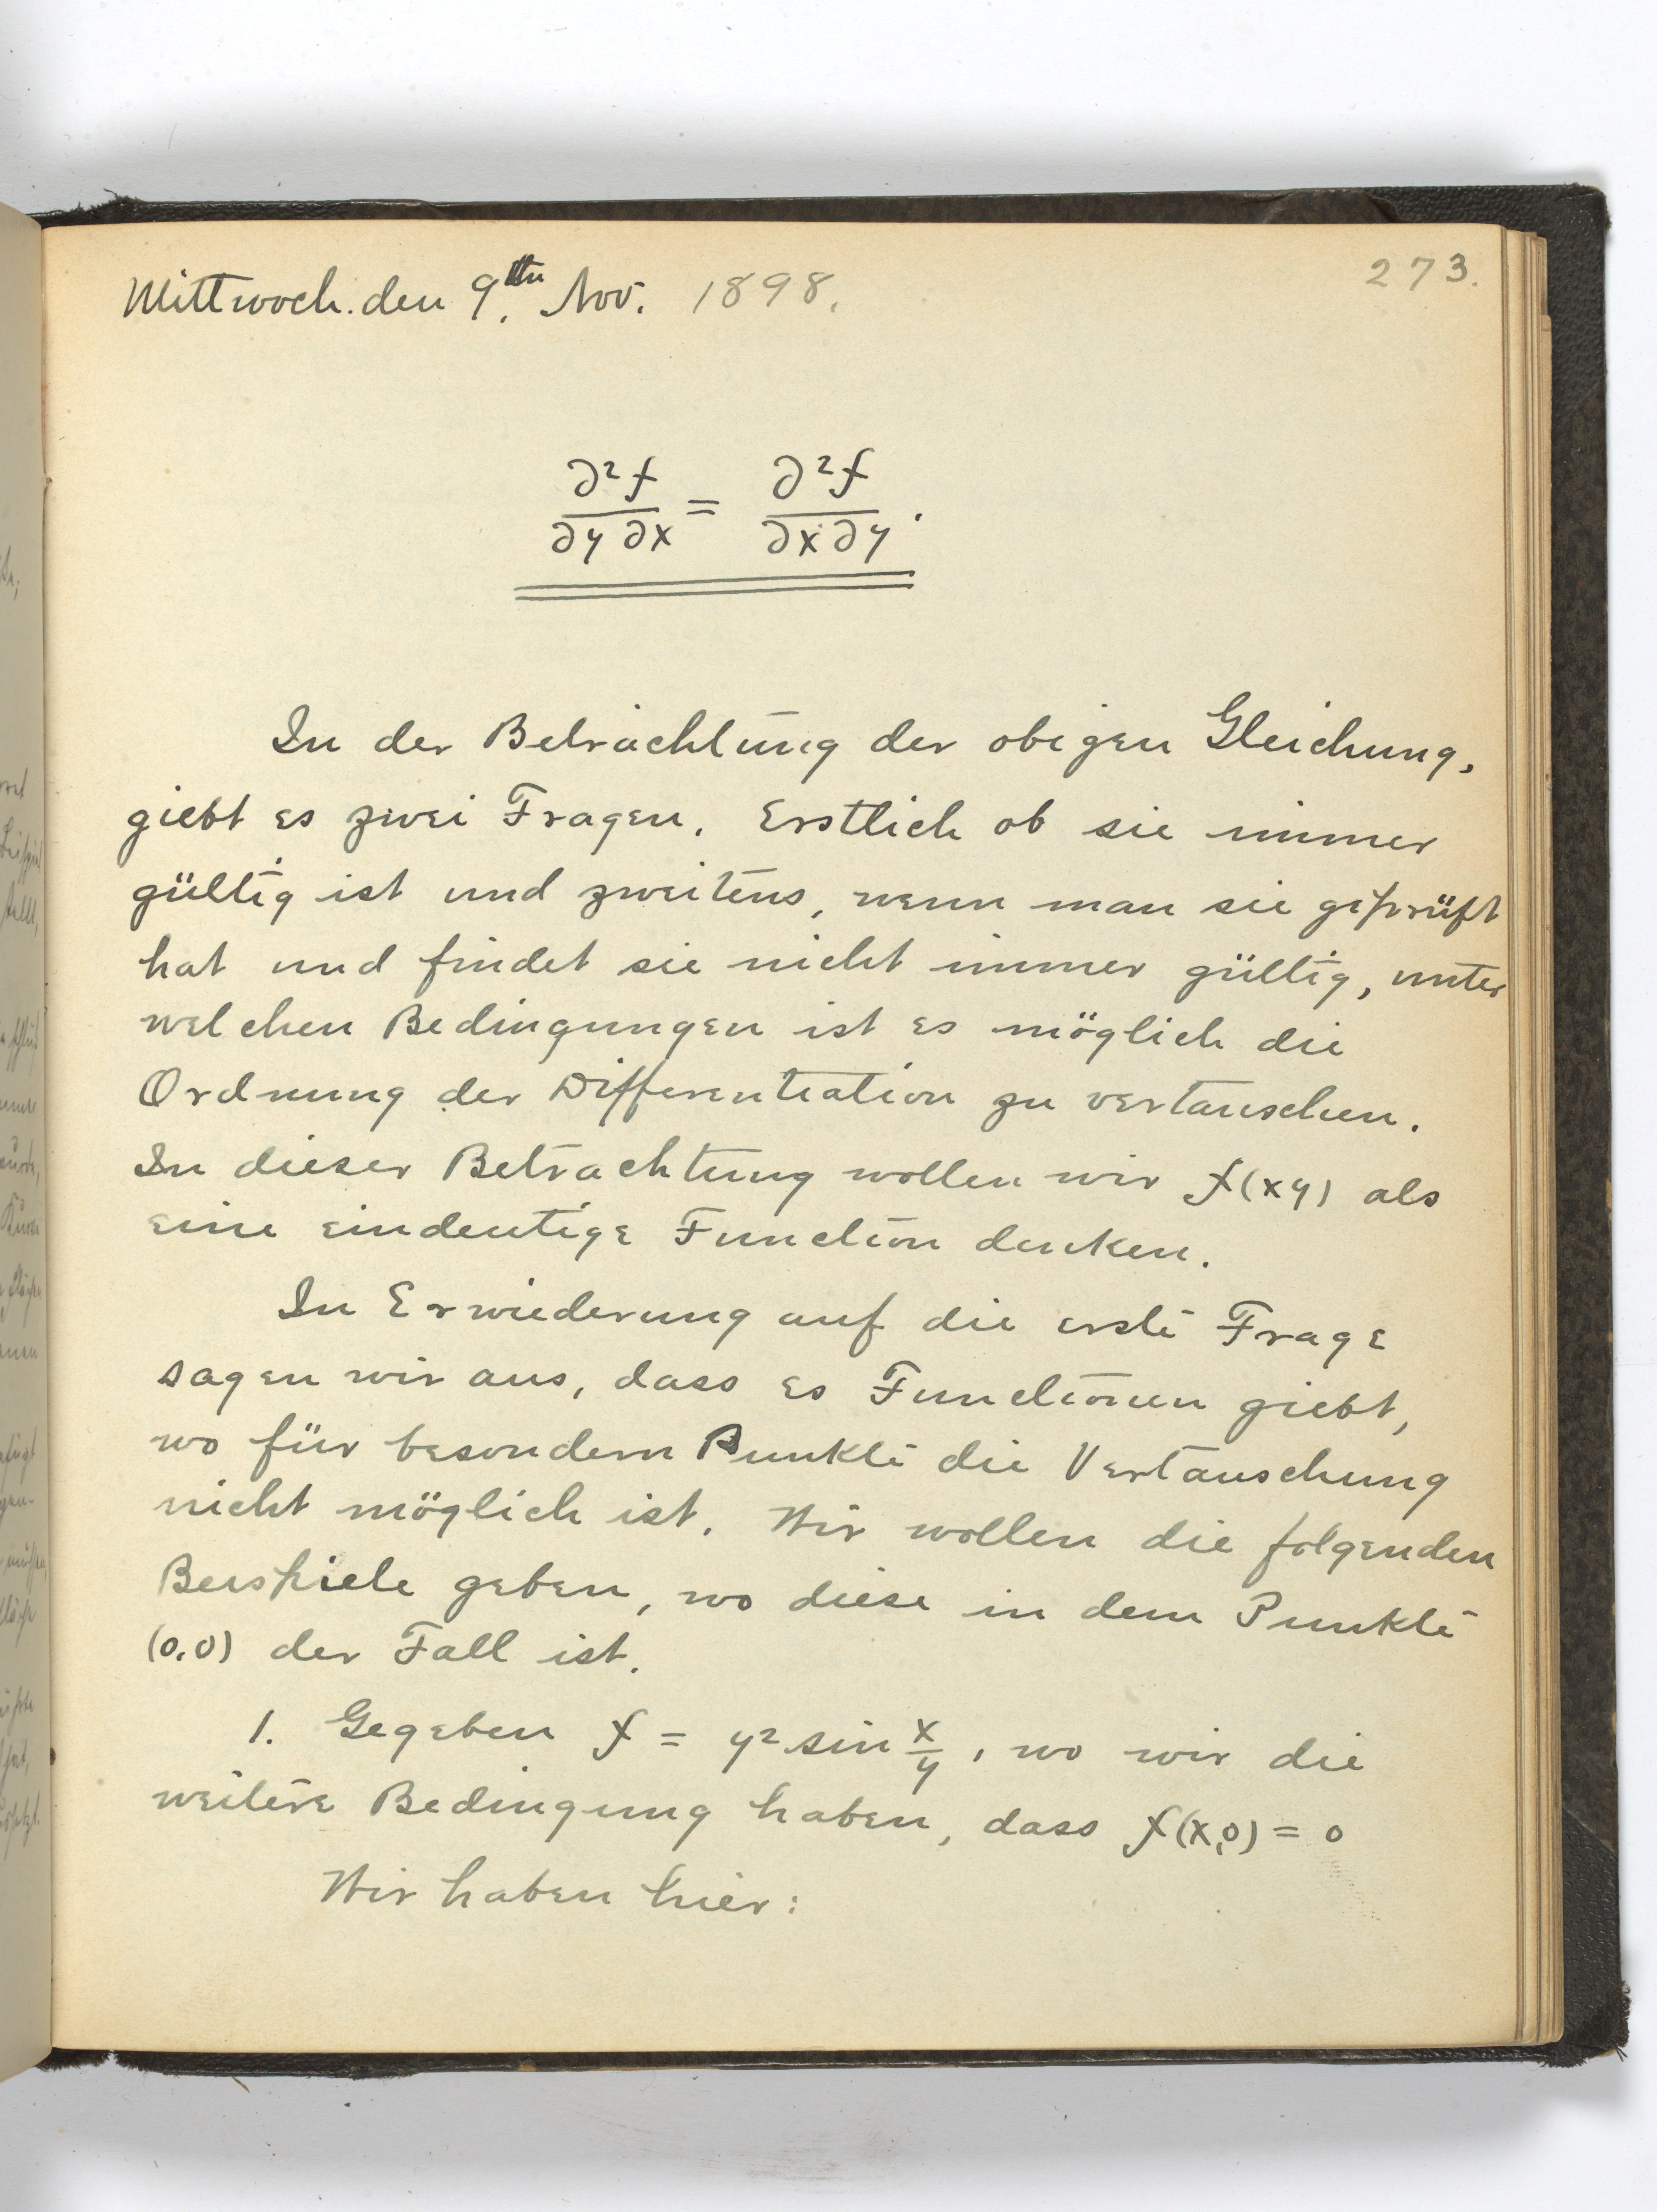 273.
Mittwoch. den 9.ten Nov. 1898.
∂²f/∂y ∂x = ∂²f/∂x ∂y.
In der Betrachtung der obigen Gleichung,
giebt es zwei Fragen. Erstlich ob sie immer
gültig ist und zweitens, wenn man sie geprüft
hat und findet sie nicht immer gültig, unter
welchen Bedingungen ist es möglich die
Ordnung der Differentiation zu vertauschen.
In dieser Betrachtung wollen wir f(xy) als
eine eindeutige Function denken.
In Erwiederung auf die erste Frage
sagen wir aus, dass es Functionen giebt,
wo für besondern Punkte die Vertauschung
nicht möglich ist. Wir wollen die folgenden
Beispiele geben, wo diese in dem Punkte
(0,0) der Fall ist.
1. Gegeben f = y² sin x/y, wo wir die
weitere Bedingung haben, dass f(x,0) = 0
Wir haben hier: